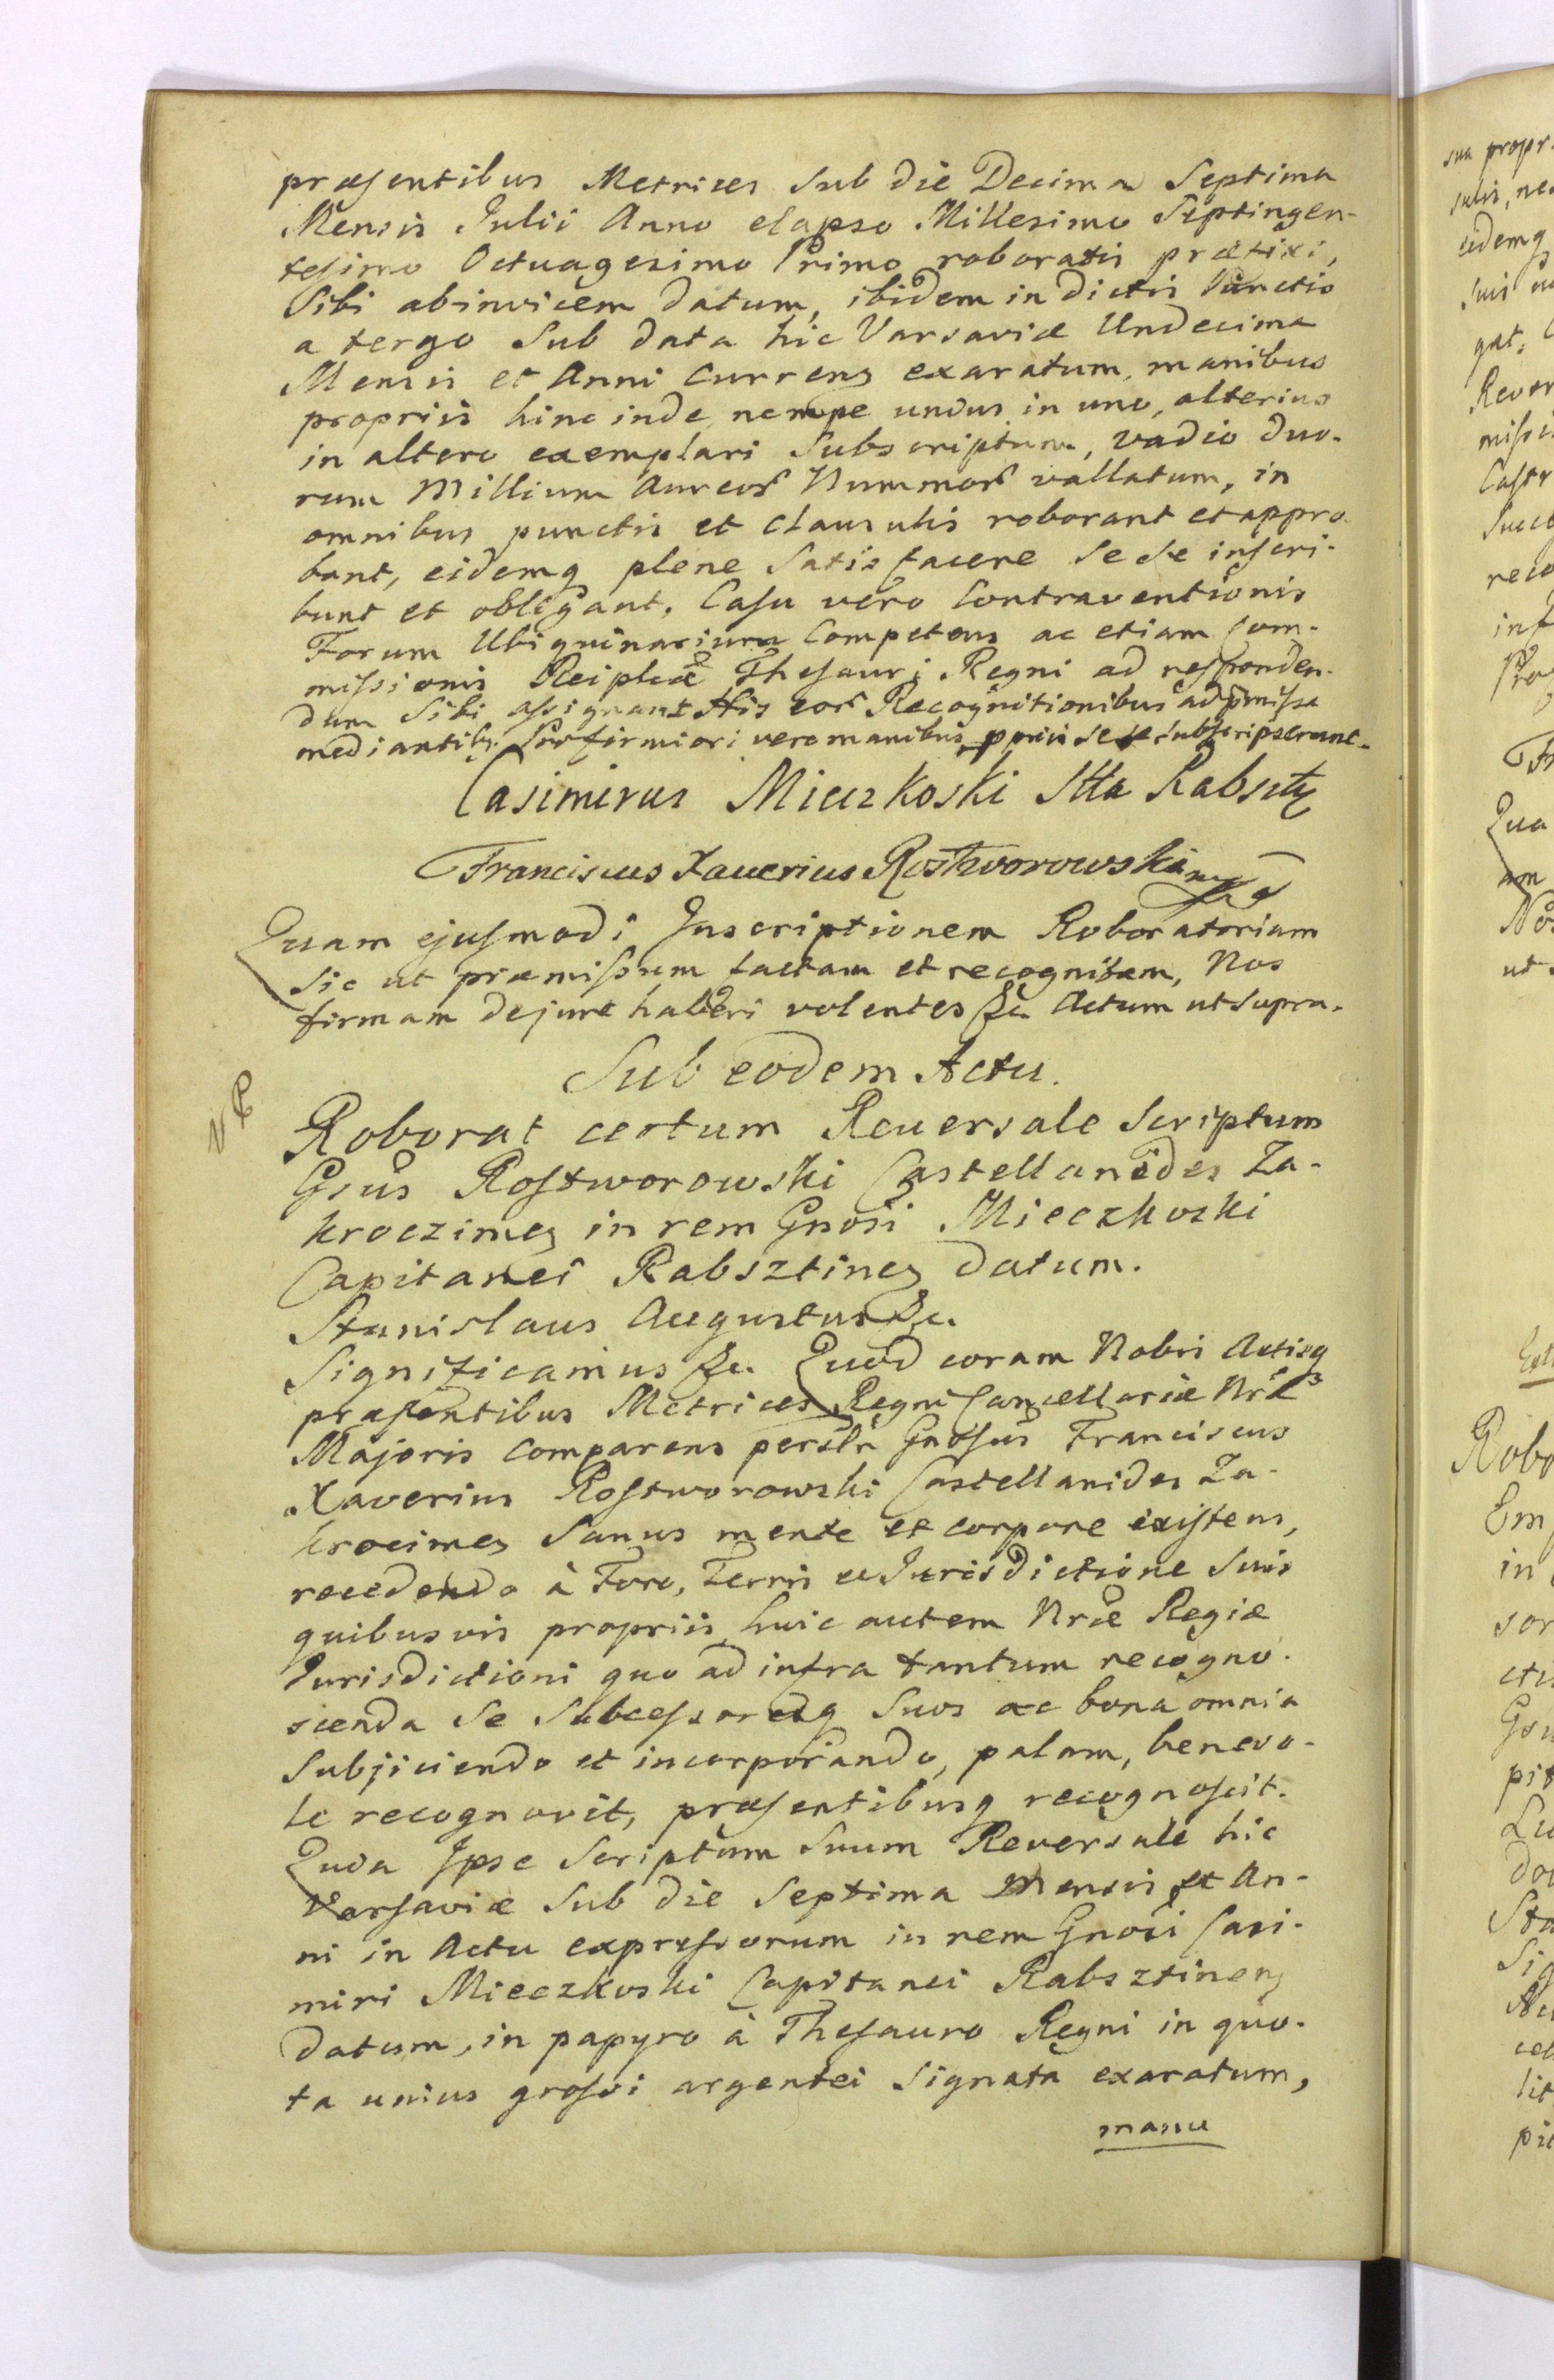 præsentibus Metrices Sub die Decima Septima
Mensis Julii Anno elapso Millesimo Septingen-
tesimo Octuagesimo Primo roboratis præfixi,
Sibi abinvicem datum, ibidem in dictis Punctis
a tergo Sub data hic Varsaviæ Undecima
Mensis et Anni Currenz exaratum, manibus
propriis hinc inde, nempe unius in uno, alterius
in altero exemplari Subscriptum, vadio duo-
rum Millium Aureor Nummor vallatum, in
omnibus punctis et Clausulis roborant et appro-
bant, eidemq plene Satisfacere Sese inscri-
bunt et obligant. Casu vero Contraventionis
Forum Ubiquinarium Competens ac etiam Com-
missionis Reiplcæ Thesauri Regni ad responden-
dum Sibi assignant His eor Recognitionibus ad præmissa
mediantib. Pro firmiori vero manibus ppriis Sese Subscripserunt.
Casimirus Mieczkoski Stta Rabszty
Franciscus Xaverius Rostworowski mpp
Quam ejusmodi Inscriptionem Roboratoriam
Sic ut præmissum factam et recognitam, Nos
firmam de jure haberi volentes &c. Actum ut Supra.
Sub eodem Actu.
Roborat certum Reversale Scriptum
Gsus Rostworowski Castellanides Za-
kroczimen in rem Gnosi Mieczkoski
Capitanei Rabsztinen datum.
Stanislaus Augustus &c.
Significamus &c. Quod coram Nobis Actisq
præsentibus Metrices Regni Cancellariæ Nræ
Majoris Comparens persltr Gnosus Franciscus
Xaverius Rostworowski Castellanides Za-
krocimen Sanus mente et corpore existens,
recedendo à Foro, Terris et Jurisdictione Suis
quibusvis propriis, huic autem Nræ Regiæ
Jurisdictioni quo ad infra tantum recogno-
scenda Se Subcessoresq Suos ac bona omnia
Subjiciendo et incorporando, palam, benevo-
le recognovit, præsentibusq recognoscit.
Quia Ipse Scriptum Suum Reversale hic
Varsaviæ Sub die Septima Mensis et An-
ni in Actu expressorum in rem Gnosi Casi-
miri Mieczkoski Capitanei Rabsztinen
datum, in papyro à Thesauro Regni in quo-
ta unius grossi argentei Signata exaratum,
manu